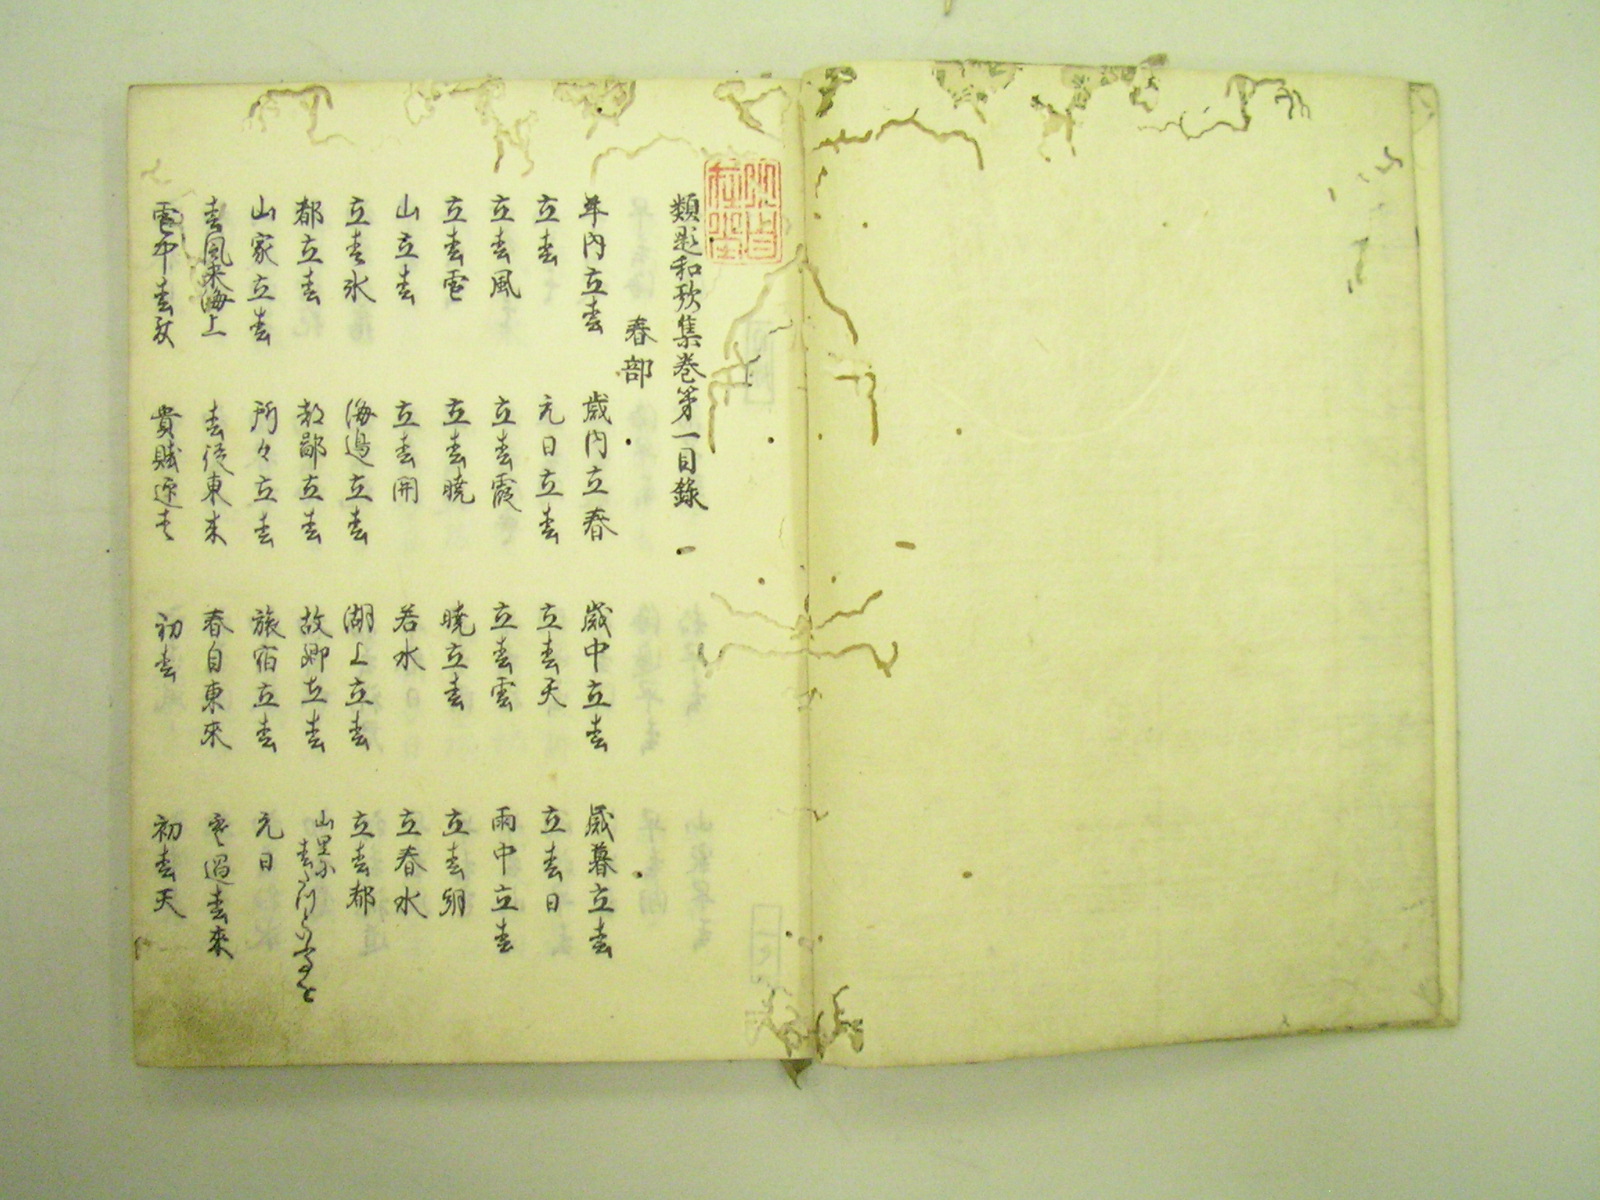 類題和歌集巻第一目錄
春部
年内立春 歳内立春 歳中立春 歳暮立春
立春 元日立春 立春天 立春日
立春風 立春霞 立春雲 雨中立春
立春雪 立春暁 暁立春 立春朝
山立春 立春関 若水 立春水
立春氷 海邊立春 湖上立春 立春都
都立春 都鄙立春 故郷立春 山里に春たつといふ事を
山家立春 所々立春 旅宿立春 元日
春風来海上 春従東来 春自東來 過春來
雪中春 貴賤迎春 初春 初春天